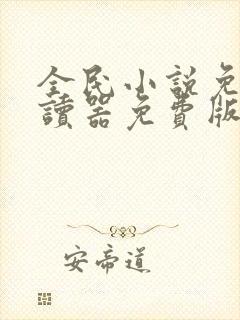 全民小說免
讀器免費版
安帝道